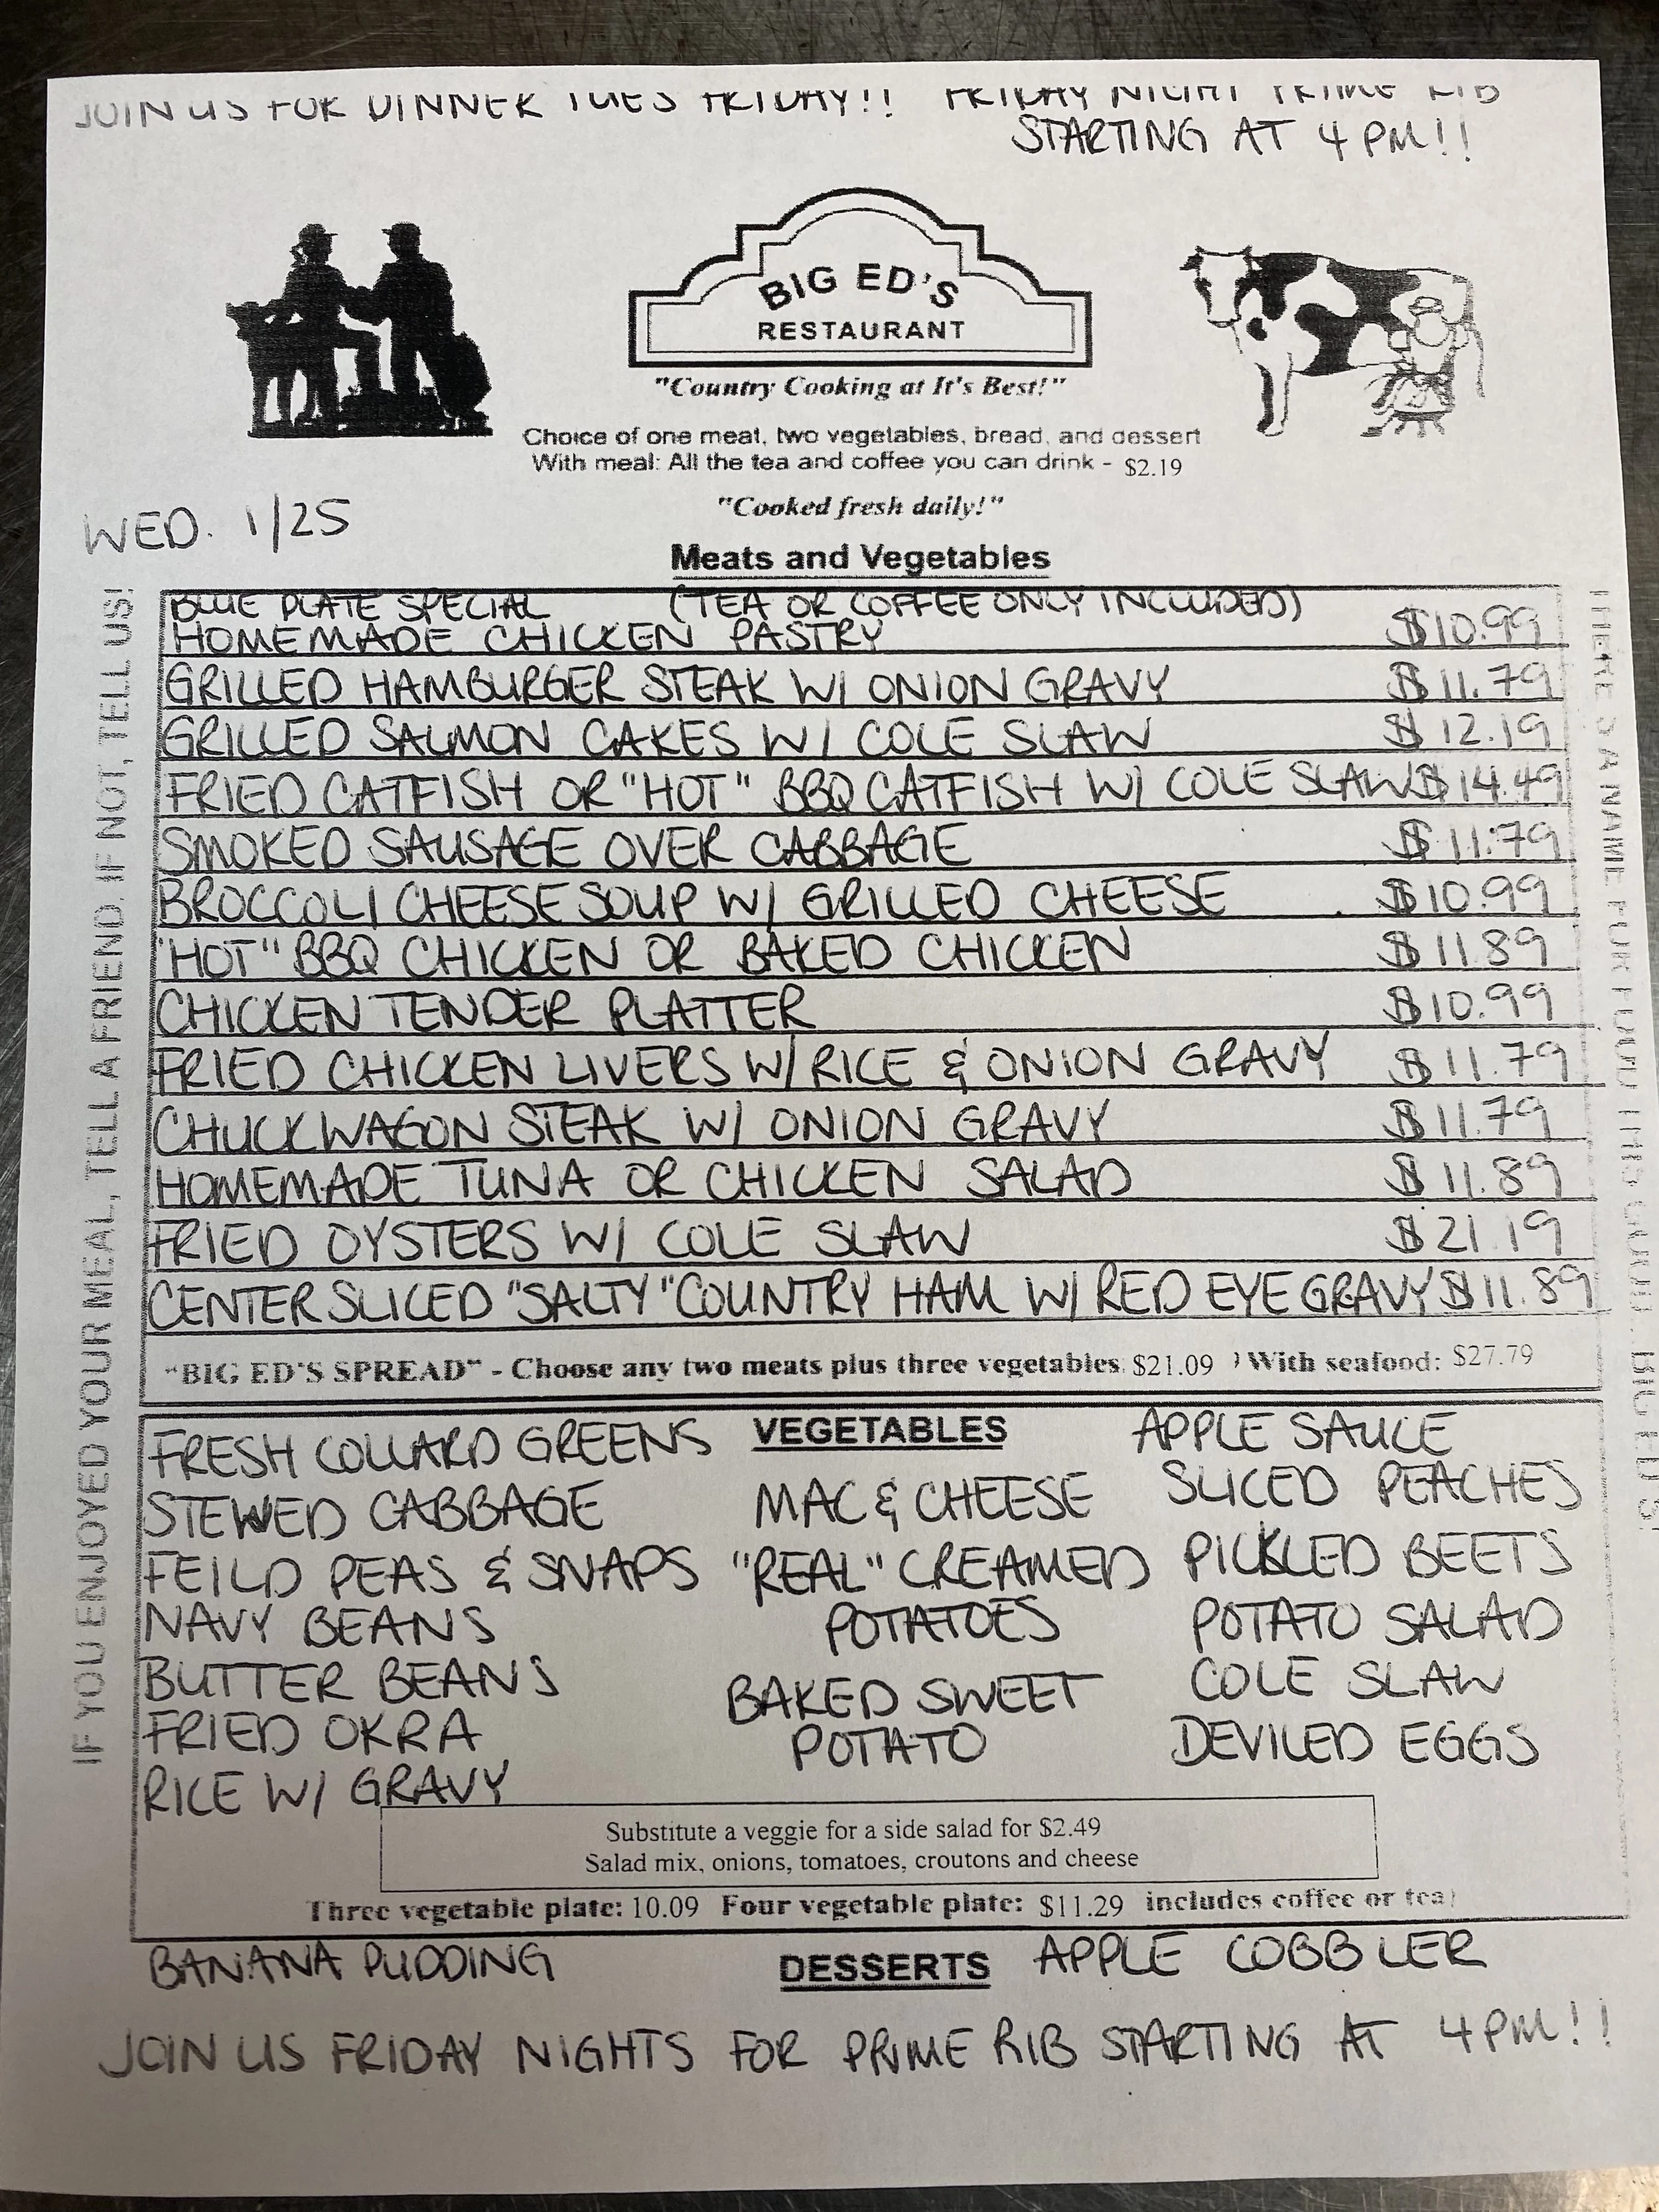 JOIN US FOR DINNER TUES FRIDAY!! FRIDAY NIGHT PRIME RIB
STARTING AT 4 PM!!
BIG ED'S
RESTAURANT
"Country Cooking at It's Best!"
Choice of one meat, two vegetables, bread, and dessert
With meal: All the tea and coffee you can drink - $2.19
"Cooked fresh daily!"
WED. 1/25
Meats and Vegetables
BLUE PLATE SPECIAL (TEA OR COFFEE ONLY INCLUDED)
HOMEMADE CHICKEN PASTRY $10.99
GRILLED HAMBURGER STEAK W/ ONION GRAVY $11.79
GRILLED SALMON CAKES W/ COLE SLAW $12.19
FRIED CATFISH OR "HOT" BBQ CATFISH W/ COLE SLAW $14.49
SMOKED SAUSAGE OVER CABBAGE $11.79
BROCCOLI CHEESE SOUP W/ GRILLED CHEESE $10.99
"HOT" BBQ CHICKEN OR BAKED CHICKEN $11.89
CHICKEN TENDER PLATTER $10.99
FRIED CHICKEN LIVERS W/ RICE & ONION GRAVY $11.79
CHUCKWAGON STEAK W/ ONION GRAVY $11.79
HOMEMADE TUNA OR CHICKEN SALAD $11.89
FRIED OYSTERS W/ COLE SLAW $21.19
CENTER SLICED "SALTY" COUNTRY HAM W/ RED EYE GRAVY $11.89
"BIG ED'S SPREAD" - Choose any two meats plus three vegetables: $21.09 ) With seafood: $27.79
IF YOU ENJOYED YOUR MEAL, TELL A FRIEND. IF NOT, TELL US!
THERE'S A NAME FOR FOOD THIS GOOD... BIG ED'S!
VEGETABLES
FRESH COLLARD GREENS
STEWED CABBAGE
FEILD PEAS & SNAPS
NAVY BEANS
BUTTER BEANS
FRIED OKRA
RICE W/ GRAVY
MAC & CHEESE
"REAL" CREAMED
POTATOES
BAKED SWEET
POTATO
APPLE SAUCE
SLICED PEACHES
PICKLED BEETS
POTATO SALAD
COLE SLAW
DEVILED EGGS
Substitute a veggie for a side salad for $2.49
Salad mix, onions, tomatoes, croutons and cheese
Three vegetable plate: 10.09 Four vegetable plate: $11.29 includes coffee or tea)
BANANA PUDDING DESSERTS APPLE COBBLER
JOIN US FRIDAY NIGHTS FOR PRIME RIB STARTING AT 4 PM!!